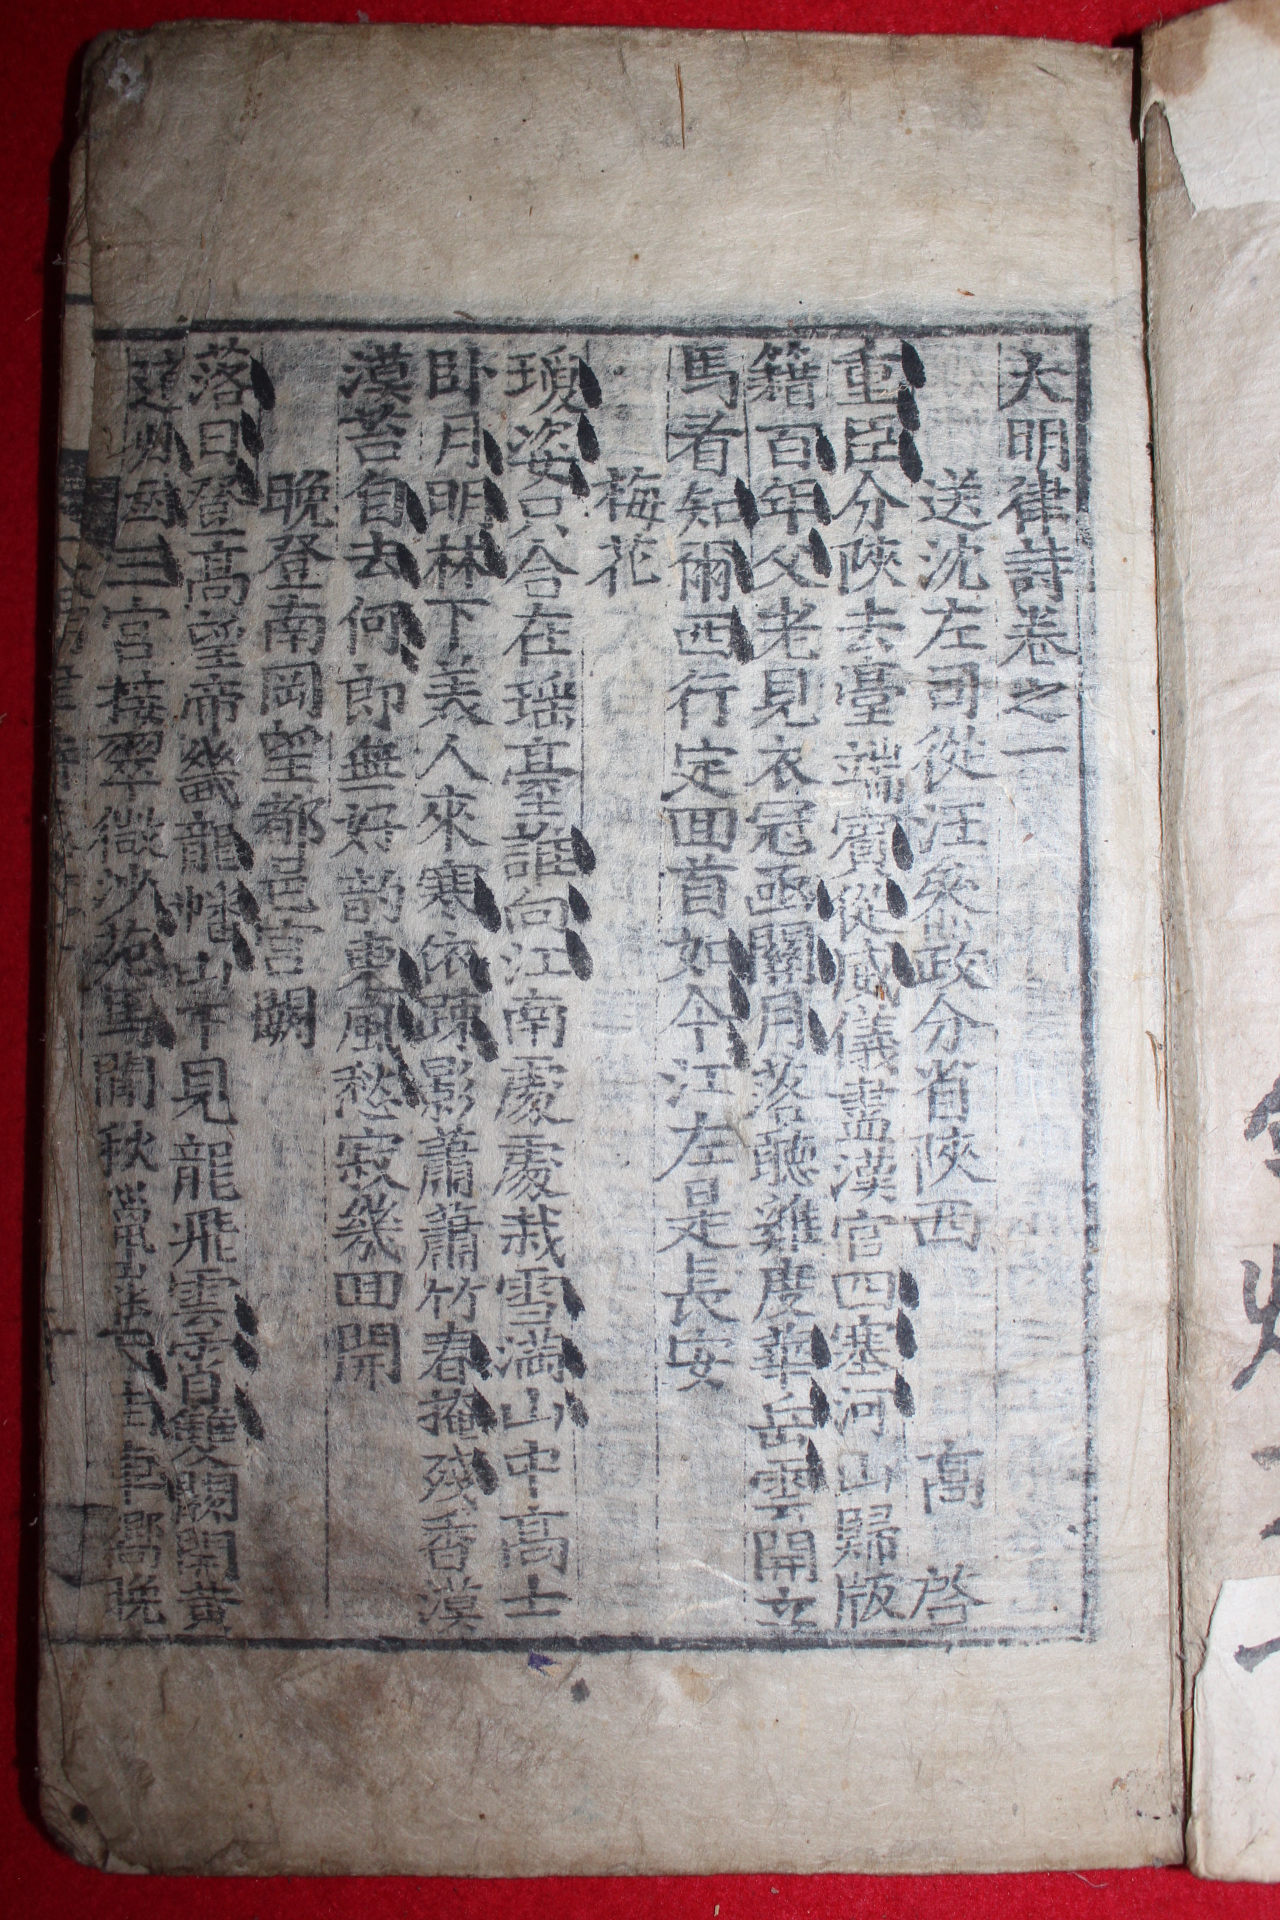 大明律詩卷之一
送沈左司從汪叅政分省陝西 高啓
重臣分陝去臺端賓從威儀盡漢官四塞河山歸版
籍百年父老見衣冠函關月落聽雞度華岳雲開立
馬看知爾西行定回首如今江左是長安
梅花
瓊姿只合在瑤臺誰向江南處處栽雪滿山中高士
卧月明林下美人來寒依疎影蕭蕭竹春掩殘香漠
漠苔自去何郎無好韵東風愁寂幾回開
晩登南岡望都邑宮闕
落日登高望帝畿龍蟠山下見龍飛雲霄雙闕開黃
道 三宮接翠微沙苑馬閑秋